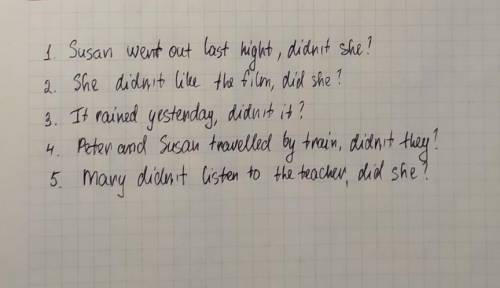 1. Susan went out last night, didn't she?
2. She didn't like the film, did she?
3. It rained yesterday, didn't it?
4. Peter and Susan travelled by train, didn't they?
5. Mary didn't listen to the teacher, did she?